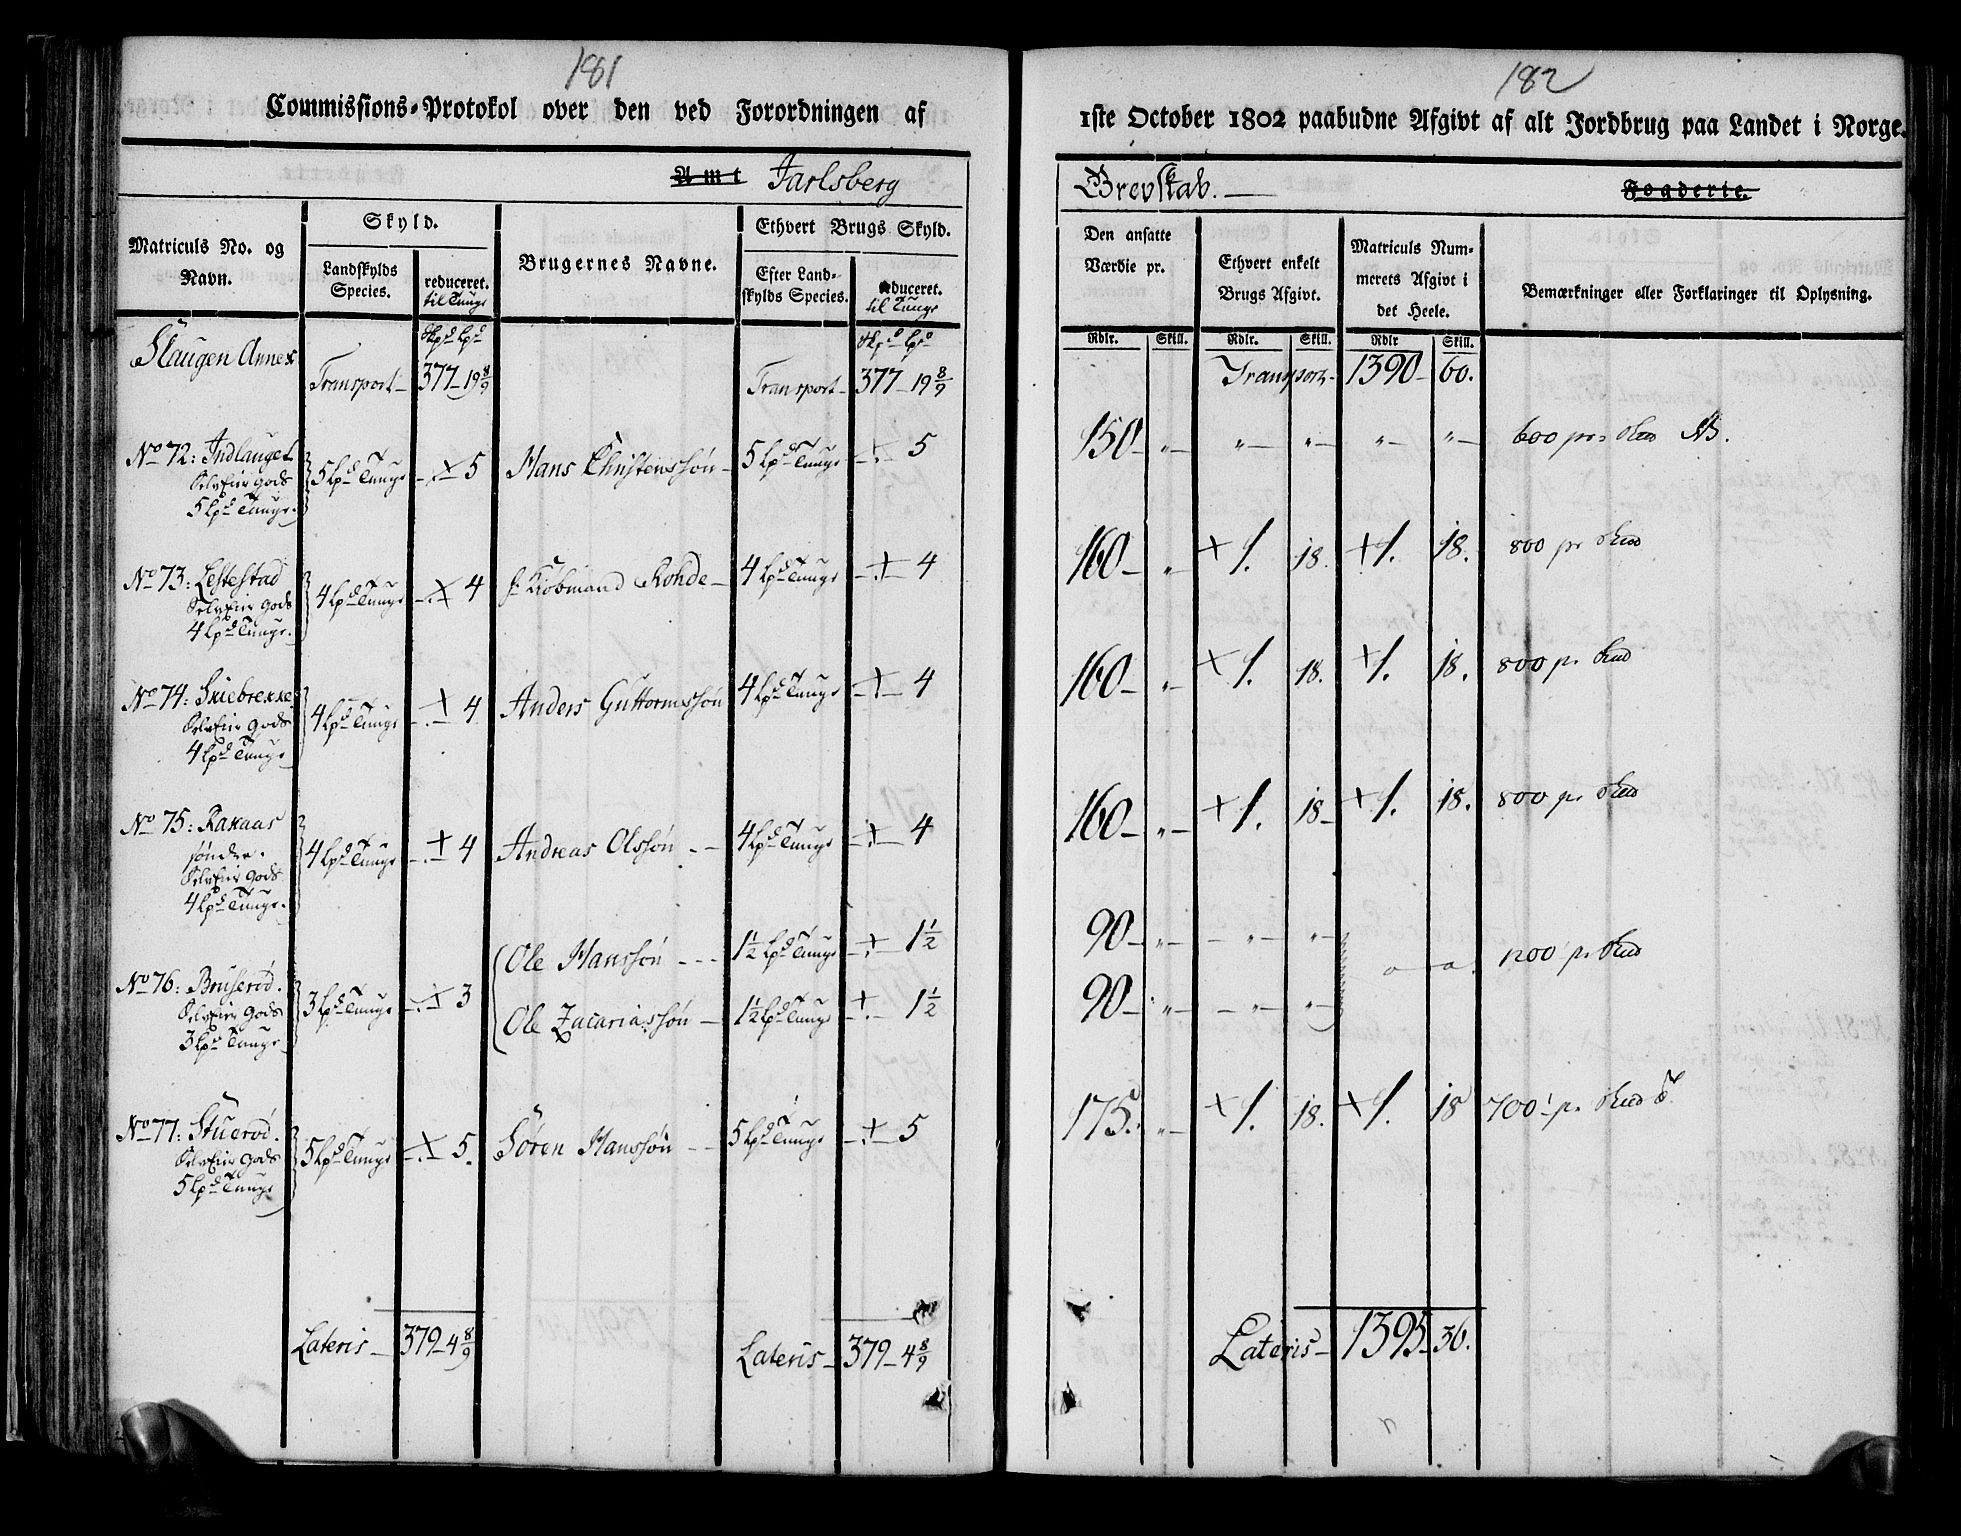 181
Commissions-Protokol over den ved Forordningen af
Amt Jarlsberg
Matriculs No. og Navn.
Skyld.
Landskylds Species.
reduceret. til Tunge
Brugernes Navne.
Ethvert Brugs Skyld.
Efter Land-skylds Species.
reduceret. til Tunge
Slaugen Annex
Transport 377 19 8/9 Transport 377 19 8/9
No 72: Indlauget 5 Lpd Tunge 5 Hans Christenssøn 5 Lpd Tunge 5
Selveier Gods
5 Lpd Tunge.
No 73: Lestestad 4 Lpd Tunge 4 Kiøbmand Rohde 4 Lpd Tunge 4
Selveier Gods
4 Lpd Tunge.
No 74: Skiebrekke 4 Lpd Tunge 4 Anders Guttormssøn 4 Lpd Tunge 4
Selveier Gods
4 Lpd Tunge
No 75: Rakaas 4 Lpd Tunge 4 Andreas Olssøn 4 Lpd Tunge 4
søndre.
Selveier Gods
4 Lpd Tunge.
Ole Hanssøn 1½ Lpd Tunge 1½
No 76: Bruserød. 3 Lpd Tunge 3
Selveier Gods
Ole Zacariassøn 1½ Lpd Tunge 1½
3 Lpd Tunge
No 77: Stuerød. 5 Lpd Tunge 5. Søren Hanssøn 5 Lpd Tunge 5
Selveier Gods
5 Lpd Tunge
Lateris 379 4 8/9 Lateris 379 4 8/9
182
1ste October 1802 paabudne Afgivt af alt Jordbrug paa Landet i Norge.
Grevskab. Fogderie.
Den ansatte Værdie pr.
Ethvert enkelt Brugs Afgivt.
Matriculs Num-merets Afgivt i det Heele.
Bemærkninger eller Forklaringer til Oplysning.
Rdlr. Skill. Rdlr. Skill. Rdlr Skill.
Transport 1390 60.
150 600 pr NB.
160 1. 18. 1. 18. 800 pr
160 1. 18. 1. 18. 800 pr
160 1. 18 1. 18. 800 pr
90
1200 pr
90
175. 1. 18. 1. 18 700 pr
Lateris 1395 36.